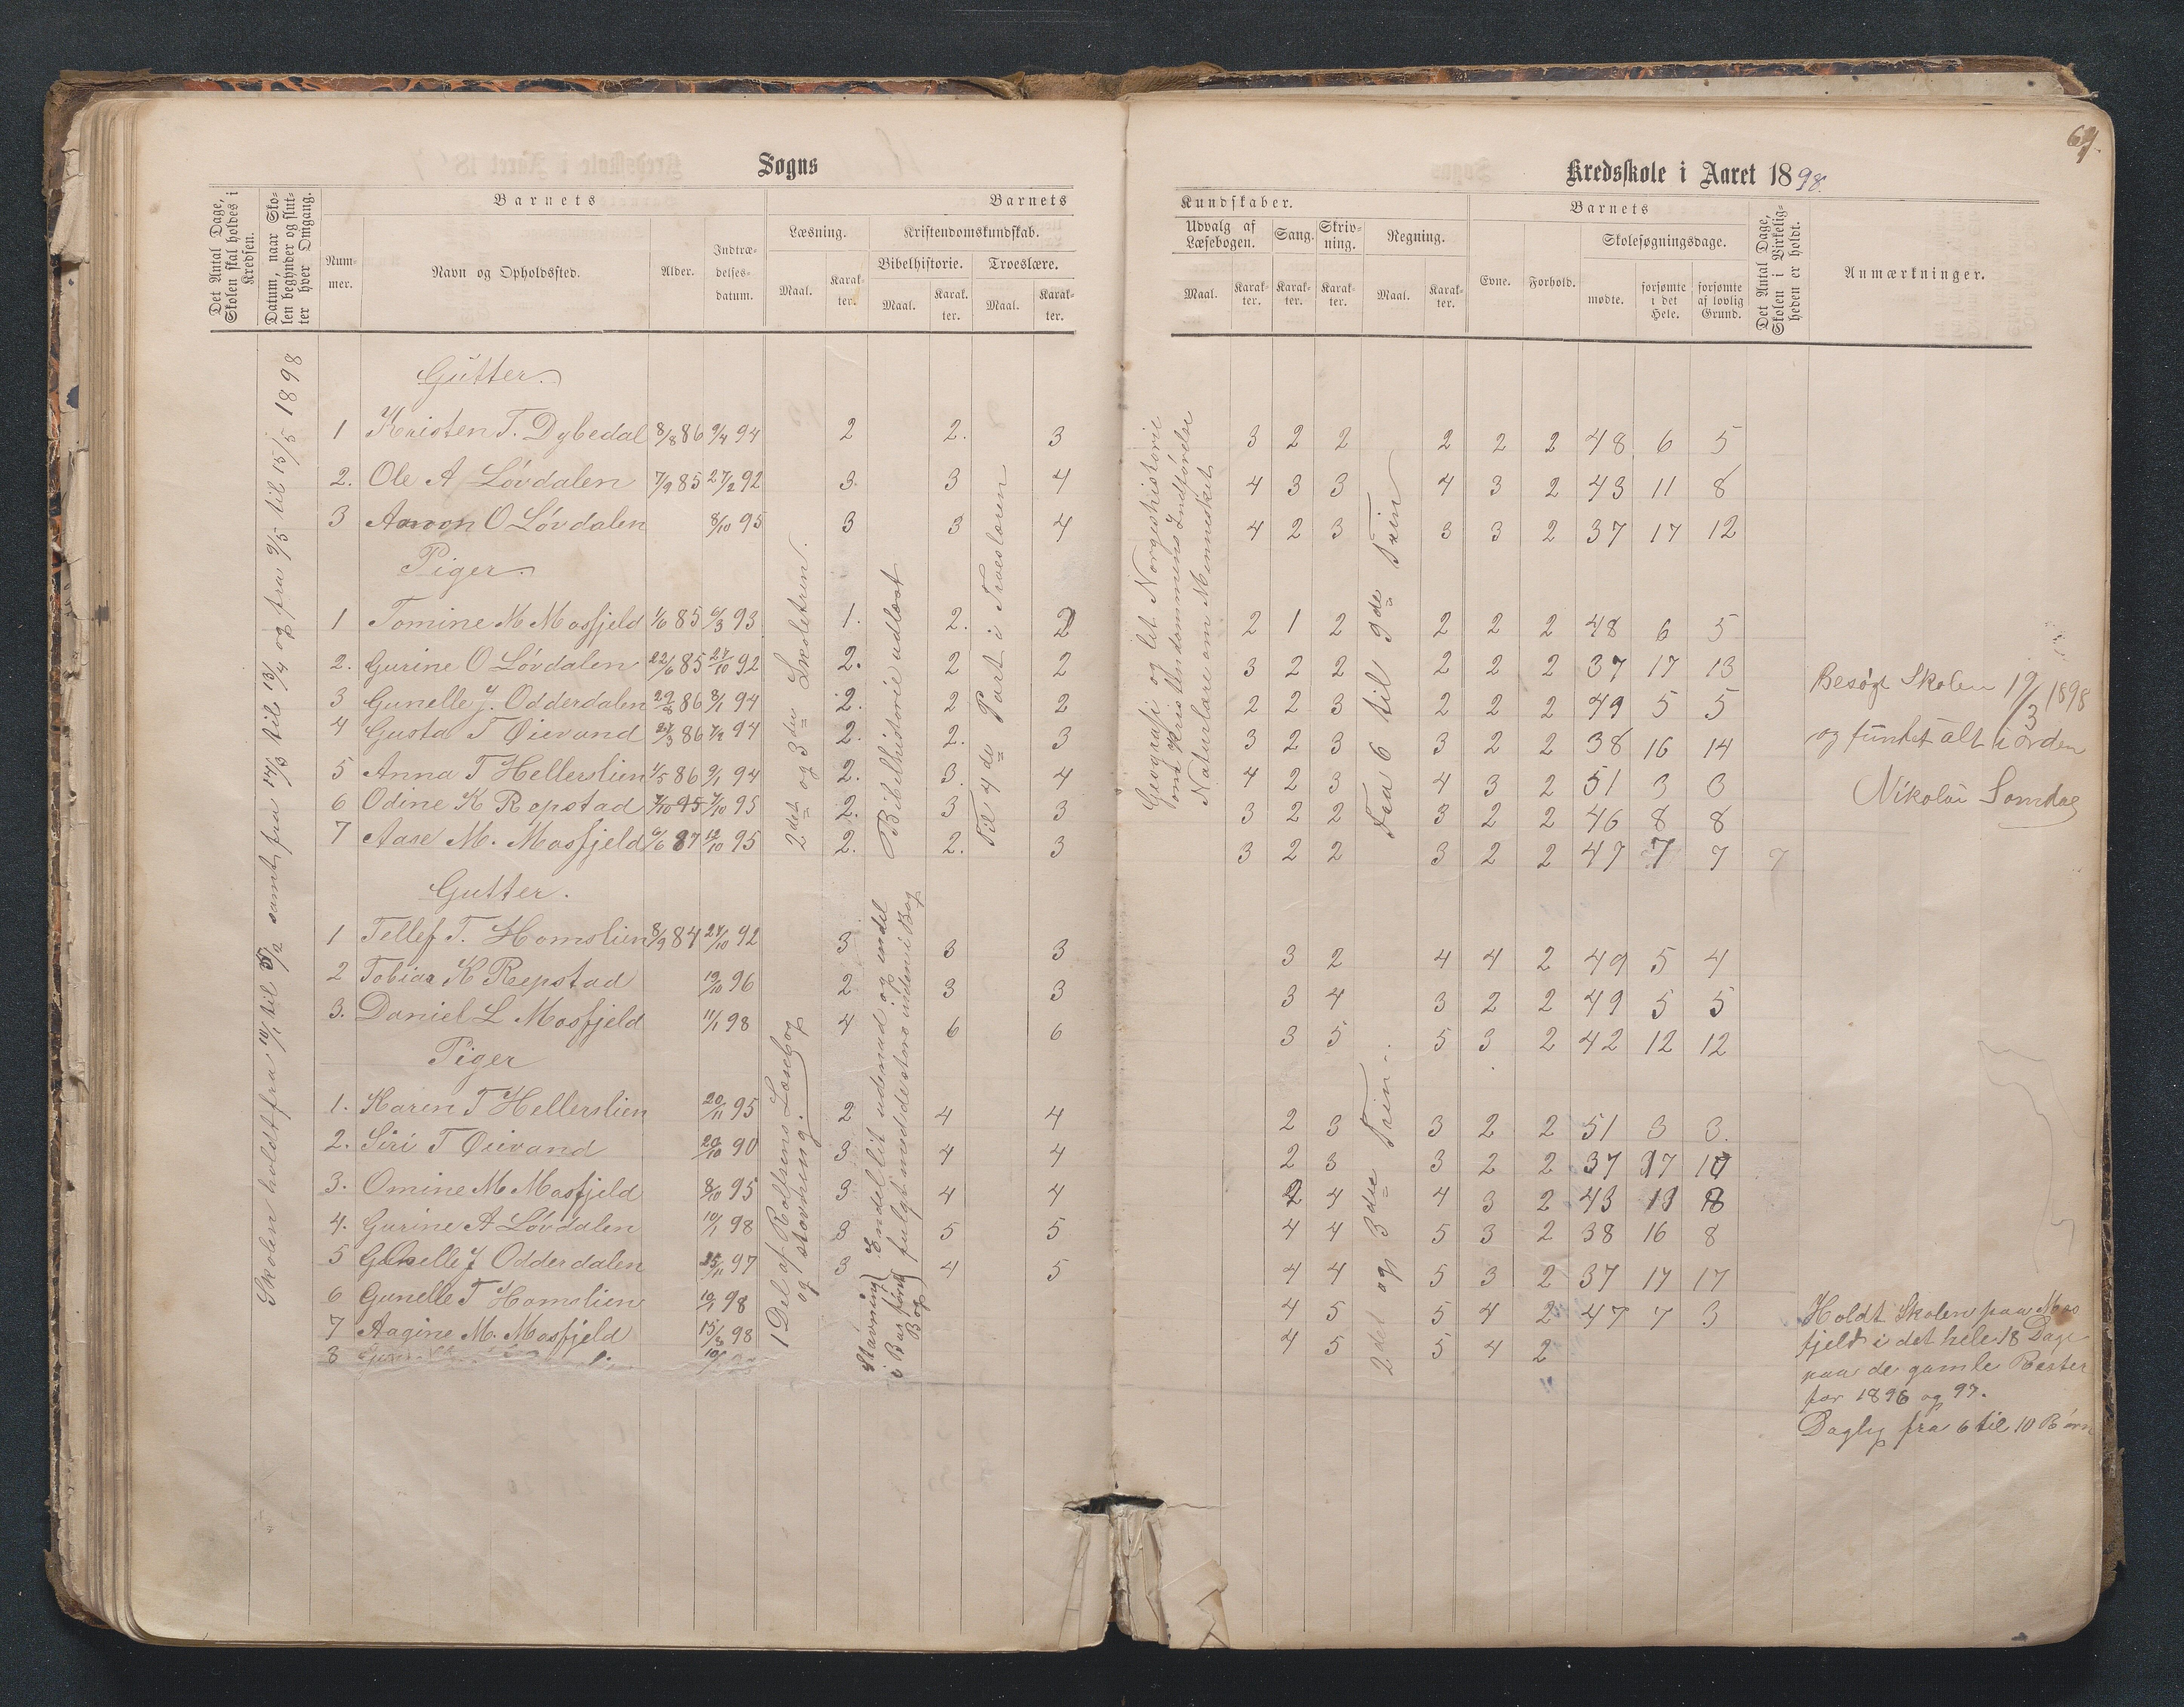 64.
Sogns
Kredsskole i Aaret 1898.
Det Antal Dage, Skolen skal holdes i Kredsen.
Datum, naar Skolen begynder og slutter hver Omgang.
Barnets
Nummer.
Navn og Opholdssted.
Alder.
Indtrædelsesdatum.
Barnets
Læsning.
Maal.
Karakter.
Kristendomskundskab.
Bibelhistorie.
Maal.
Karakter.
Troeslære.
Maal.
Karakter.
Kundskaber.
Udvalg af Læsebogen.
Maal.
Karakter.
Sang.
Karakter.
Skrivning.
Karakter.
Regning.
Maal.
Karakter.
Barnets
Evne.
Forhold.
Skolesøgningsdage.
mødte.
forsømte i det Hele.
forsømte af lovlig Grund.
Det Antal Dage, Skolen i Virkeligheden er holdt.
Anmærkninger.
Skolen holdt fra 10/1 til 5/2 samt fra 14/3 til 13/4 og fra 9/5 til 15/5 1898
Gutter.
1 Kristen T. Dybedal 8/8 86 9/4 94 2 2. 3 3 2 2 2 2 2 48 6 5
2. Ole A Løvdalen 7/9 85 27/2 92 3. 3 4 4 3 3 4 3 2 43 11 8
3 Aanon O Løvdalen 8/10 95 3 3 4 4 2 3 3 3 2 37 17 12
Piger.
1 Tomine M Mosfjeld 1/6 85 6/3 93 1. 2. 2 2 1 2 2 2 2 48 6 5
2. Gurine O Løvdalen 22/6 85 27/10 92 2. 2 2 3 2 2 2 2 2 37 17 13
3 Gunelle J. Odderdalen 29/2 86 8/1 94 2. 2 2 2 2 3 2 2 2 49 5 5
4 Gusta T Øievand 27/3 86 7/2 94 2. 2. 3 3 2 3 3 2 2 38 16 14
5 Anna T Hellerslien 4/5 86 9/1 94 2. 3. 4 4 2 3 4 3 2 51 3 3
6 Odine K Repstad 7/10 85 7/10 95 2. 3 3 3 2 2 3 2 2 46 8 8
7 Aase M. Mosfjeld 6/6 87 12/10 95 2. 2. 3 3 2 2 3 2 2 47 7 7 7
2det og 3die Skoletrin.
Bibelhistorie udlæst
Til 4de Part i Troeslæren
Geografi og lit Norgeshistorie
om Kristendommens Indførelse
Naturlære om Mennesket
Fra 6 til 9de Trin
Besøgt Skolen 19/3 1898
og funtet alt i orden
Nikolai Somdal
Gutter.
1 Tellef T. Homslien 8/9 84 27/10 92 3 3 3 3 2 4 4 2 49 5 4
2 Tobias K Repstad 19/10 96 2 3 3 3 4 3 2 2 49 5 5
3. Daniel L Mosfjeld 11/1 98 4 6 6 3 5 5 3 2 42 12 12
Piger
1. Karen T Hellerslien 20/11 95 2 4 4 2 3 3 2 2 51 3 3.
2. Siri T Øievand 29/10 90 3 4 4 2 3 3 2 2 37 17 17
3. Omine M Mosfjeld 8/10 95 3 4 4 2 4 4 3 2 43 11 8
4. Gurine A Løvdalen 10/1 98 3 5 5 4 4 5 3 2 38 16 8
5 Gunelle J Odderdalen 25/11 97 3 4 5 4 4 5 3 2 37 17 17
6 Gunelle T Homslien 10/1 98 4 5 5 4 2 47 7 3
7 Aagine M. Mosfjeld 15/3 98 4 5 5 4 2
8
1 Del af Rolfsens Læsebog
og stavning.
Stavning
i Barførd Bog
Endel lit udenad og endel
fulgt med de store indeni Bog
2det og 3die Trin.
Holdt Skolen paa Mos
fjeld i det hele 18 Dage
paa de gamle Rester
for 1896 og 97.
Daglig fra 6 til 10 Børn